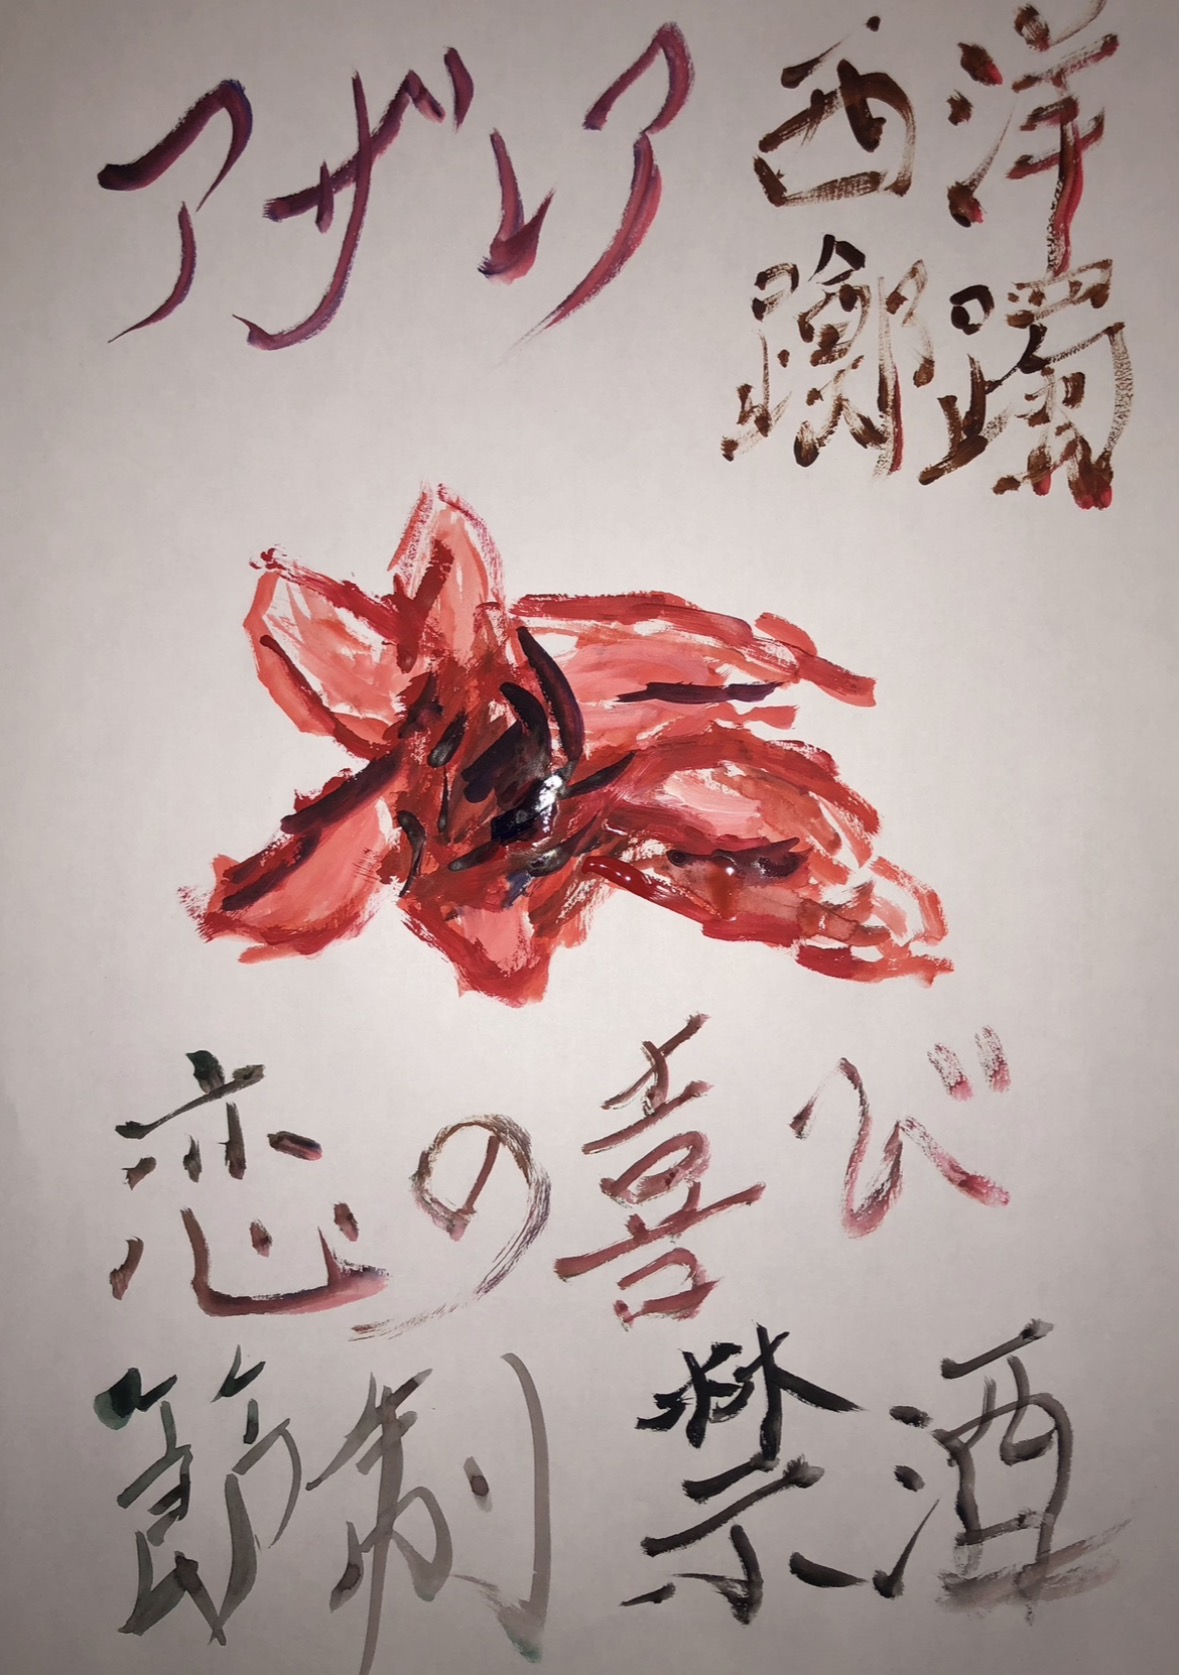 アザレア
西洋
躑躅
恋の喜び
節制
禁酒